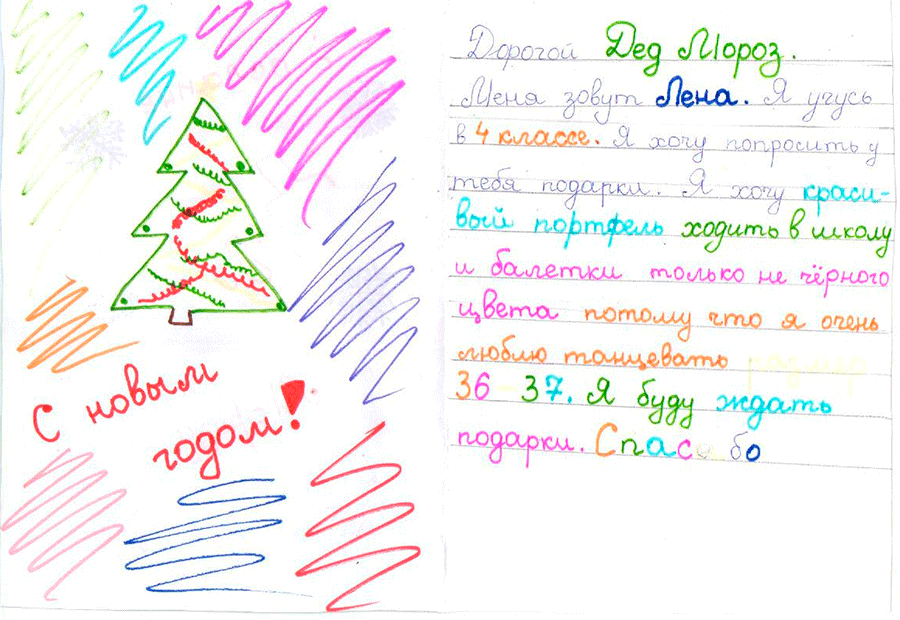 С новым
годом!
Дорогой Дед Мороз.
Меня зовут Лена. Я учусь
в 4 классе. Я хочу попросить у
тебя подарки. Я хочу краси-
вый портфель ходить в школу
и балетки только не чёрного
цвета потому что я очень
люблю танцевать размер
36-37. Я буду ждать
подарки. Спасибо